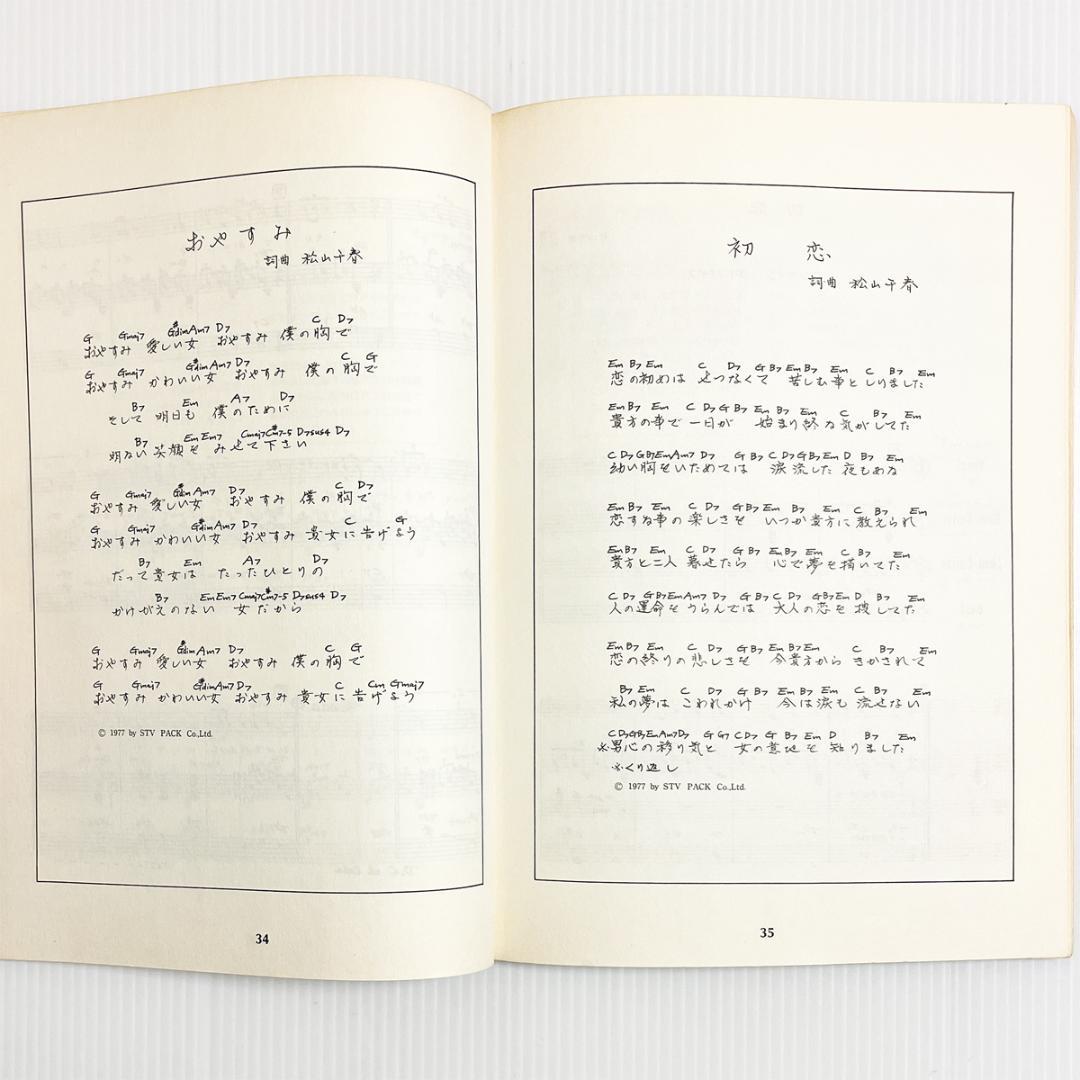 おやすみ
詞曲 松山千春
G Gmaj7 G#dim Am7 D7 C D7
おやすみ 愛しい女 おやすみ 僕の胸で
G Gmaj7 G#dim Am7 D7 C G
おやすみ かわいい女 おやすみ 僕の胸で
B7 Em A7 D7
そして 明日も 僕のために
B7 Em Em7 Cmaj7 C#m7-5 D7sus4 D7
明るい 笑顔を みせて下さい
G Gmaj7 G#dim Am7 D7 C D7
おやすみ 愛しい女 おやすみ 僕の胸で
G Gmaj7 G#dim Am7 D7 C G
おやすみ かわいい女 おやすみ 貴女に告げよう
B7 Em A7 D7
だって貴女は たったひとりの
B7 Em Em7 Cmaj7 C#m7-5 D7sus4 D7
かけがえのない 女だから
G Gmaj7 G#dim Am7 D7 C G
おやすみ 愛しい女 おやすみ 僕の胸で
G Gmaj7 G#dim Am7 D7 C Cm Gmaj7
おやすみ かわいい女 おやすみ 貴女に告げよう
© 1977 by STV PACK Co.,Ltd.
34
初恋
詞曲 松山千春
Em B7 Em C D7 G B7 Em B7 Em C B7 Em
恋の初めは せつなくて 苦しむ事としりました
Em B7 Em C D7 G B7 Em B7 Em C B7 Em
貴方の事で一日が 始まり終る気がしてた
C D7 G B7 Em Am7 D7 G B7 C D7 G B7 Em D B7 Em
幼い胸をいためては 涙流した夜もある
Em B7 Em C D7 G B7 Em B7 Em C B7 Em
恋する事の楽しさを いつか貴方に教えられ
Em B7 Em C D7 G B7 Em B7 Em C B7 Em
貴方と二人 暮せたら 心で夢を描いてた
C D7 G B7 Em Am7 D7 G B7 C D7 G B7 Em D B7 Em
人の運命を うらんでは 大人の恋を捜してた
Em B7 Em C D7 G B7 Em B7 Em C B7 Em
恋の終りの悲しさを 今貴方から きかされて
B7 Em C D7 G B7 Em B7 Em C B7 Em
私の夢は こわれかけ 今は涙も流せない
C D7 G B7 Em Am7 D7 G G7 C D7 G B7 Em D B7 Em
※男心の移り気と 女の意地を知りました
※くり返し
© 1977 by STV PACK Co.,Ltd.
35